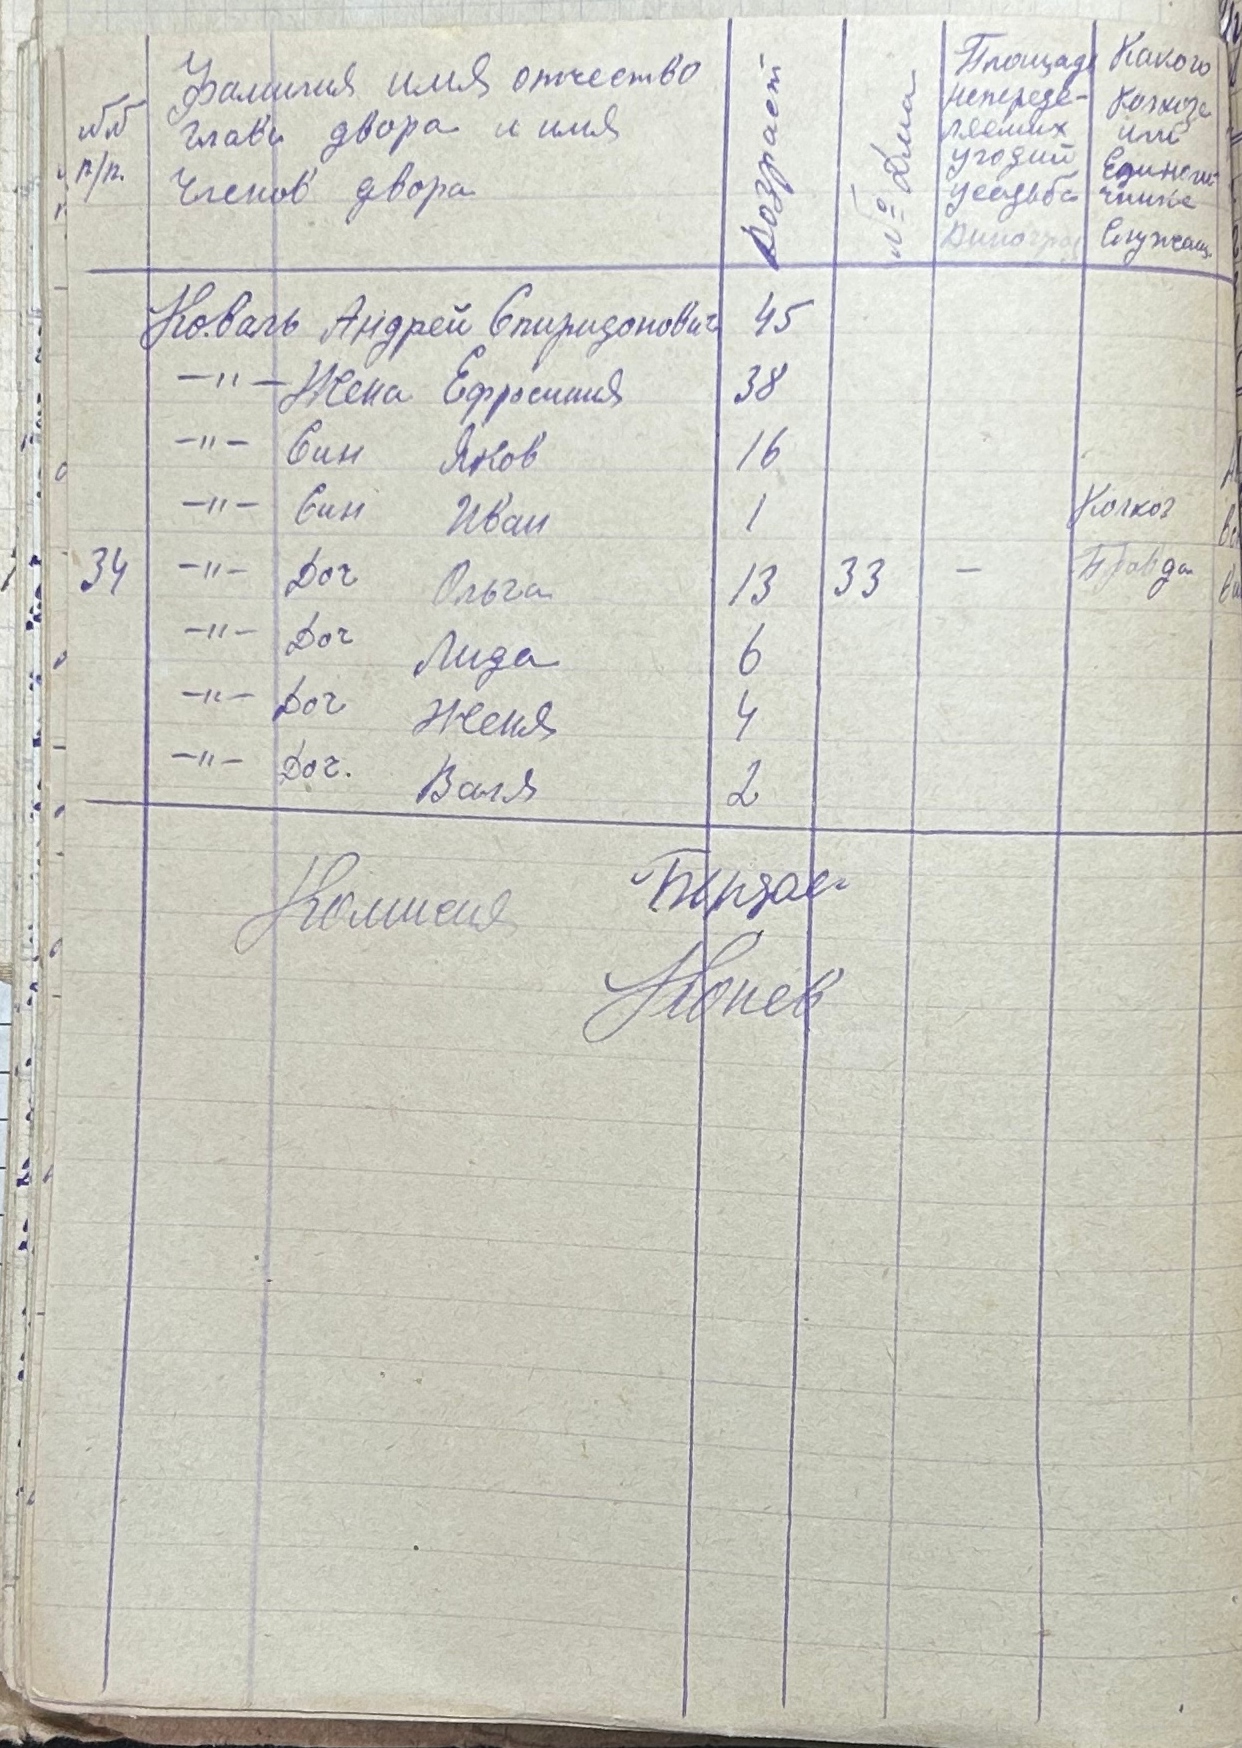 №№ п/п.
Фамилия имя отчество
глави двора и имя
членов двора
Возраст
№ Дма
Площадь
непереде-
ляемих
угодий
усадьба
Виноград
Какого
колхоза
или
Единоли-
чника
Служащ.
Коваль Андрей Спиридонович 45
—"— Жена Ефросиния 38
—"— Син Яков 16
—"— Син Иван 1 Колхоз
34 —"— Доч Ольга 13 33 — Правда
—"— Доч Лида 6
—"— Доч Женя 4
—"— Доч. Валя 2
Комисия
Конев